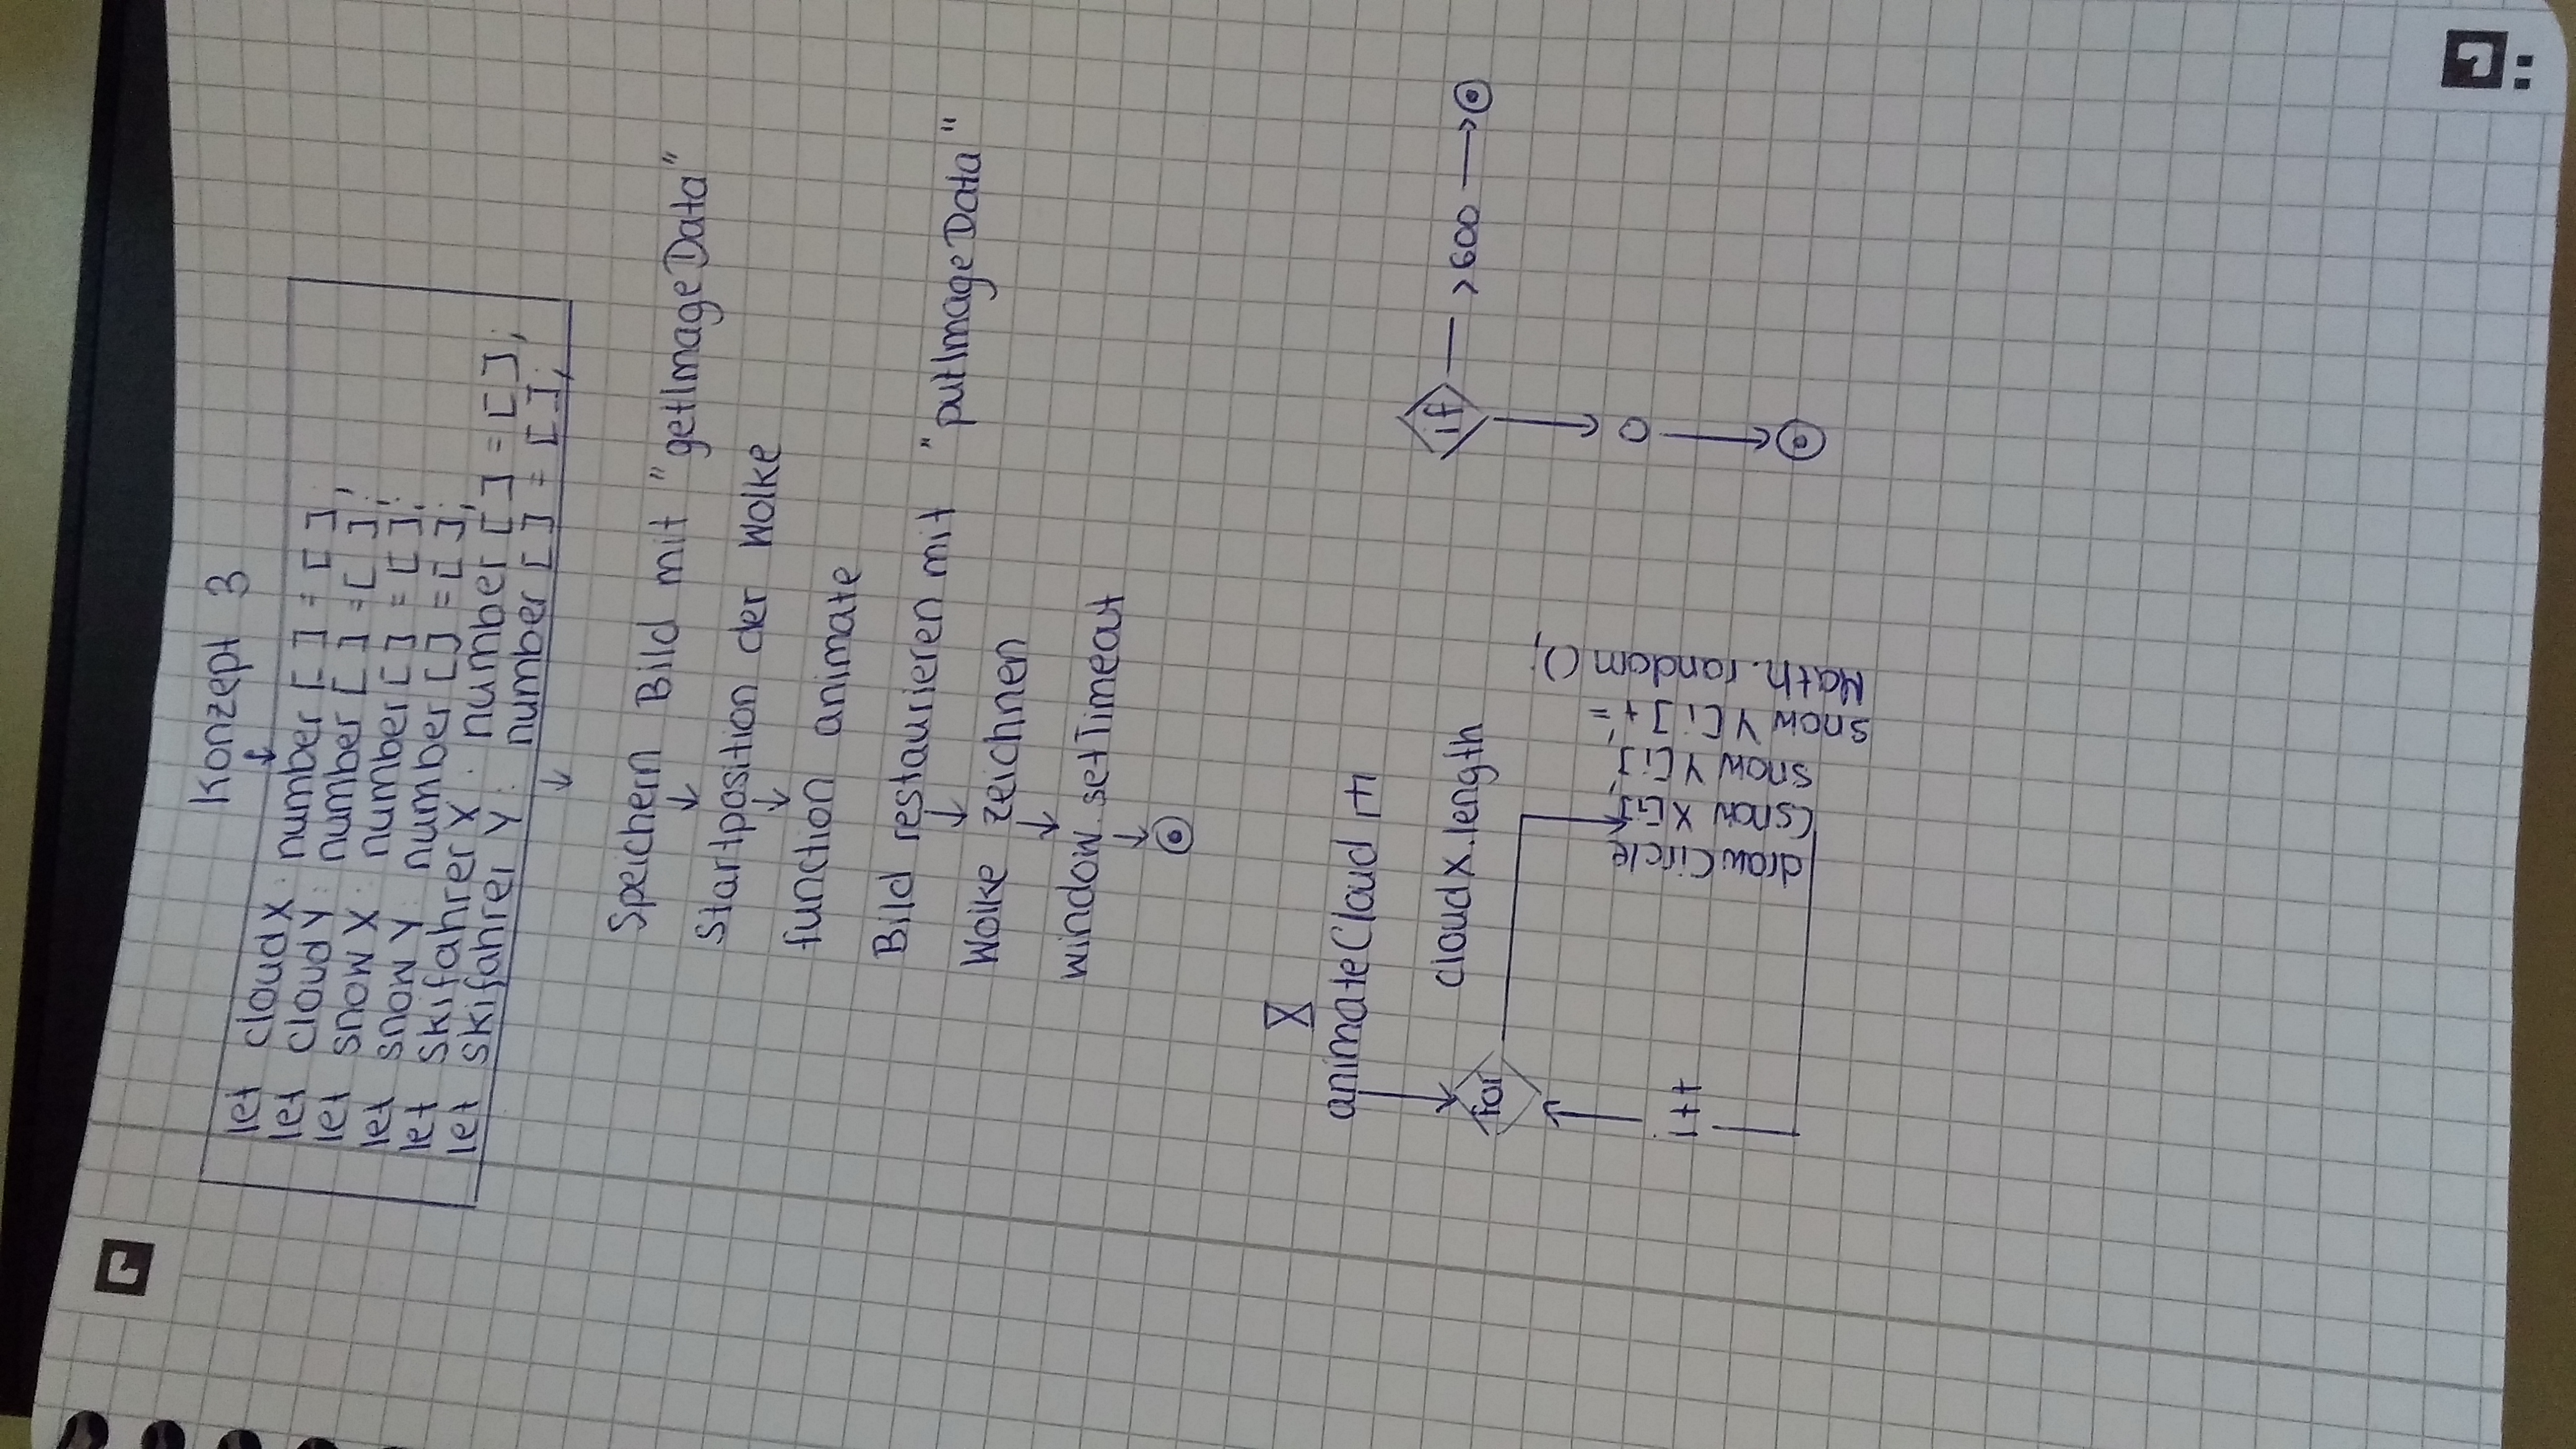 Konzept 3
let cloudX: number [ ] = [ ];
let cloudY: number [ ] = [ ];
let snowX: number [ ] = [ ];
let snowY: number [ ] = [ ];
let skifahrerX: number [ ] = [ ];
let skifahrerY: number [ ] = [ ];
Speichern Bild mit "getImageData"
Startposition der Wolke
function animate
Bild restaurieren mit "putImageData"
Wolke zeichnen
window.setTimeout
animateCloud
for
cloudX.length
i++
drawCircle
(snowX[i],
snowY[i])
snowY[i] +=
Math.random();
if
>600